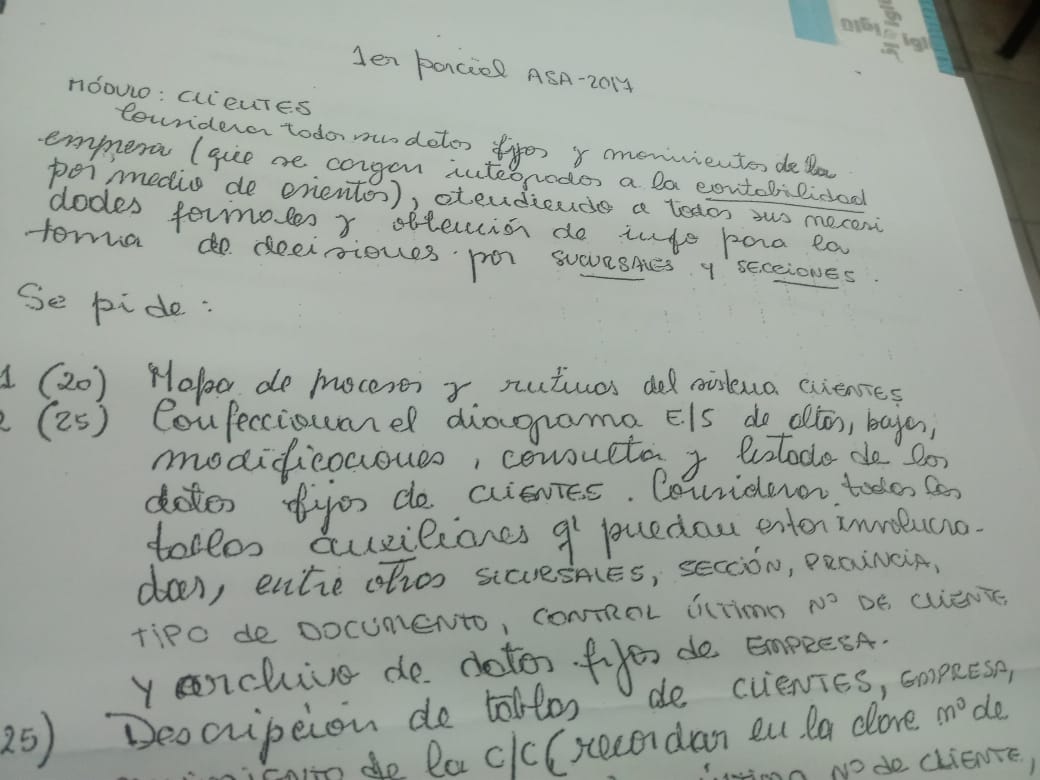 1er parcial ASA-2017
MÓDULO: CLIENTES
Considerar todos sus datos fijos y movimientos de la
empresa (que se cargan integrados a la contabilidad
por medio de asientos), atendiendo a todos sus necesi
dades formales y obtención de info para la
toma de decisiones por SUCURSALES y SECCIONES.
Se pide:
1 (20) Mapa de procesos y rutinas del sistema CLIENTES
2 (25) Confeccionar el diagrama E/S de altas, bajas,
modificaciones, consulta y listado de los
datos fijos de CLIENTES. Considerar todas las
tablas auxiliares q' puedan estar involucra-
das, entre otros SUCURSALES, SECCIÓN, PROVINCIA,
TIPO de DOCUMENTO, CONTROL ÚLTIMO Nº DE CLIENTE
y archivo de datos fijos de EMPRESA.
25) Descripción de tablas de CLIENTES, EMPRESA,
de la c/c (recordar en la clave nº de
Nº DE CLIENTE,